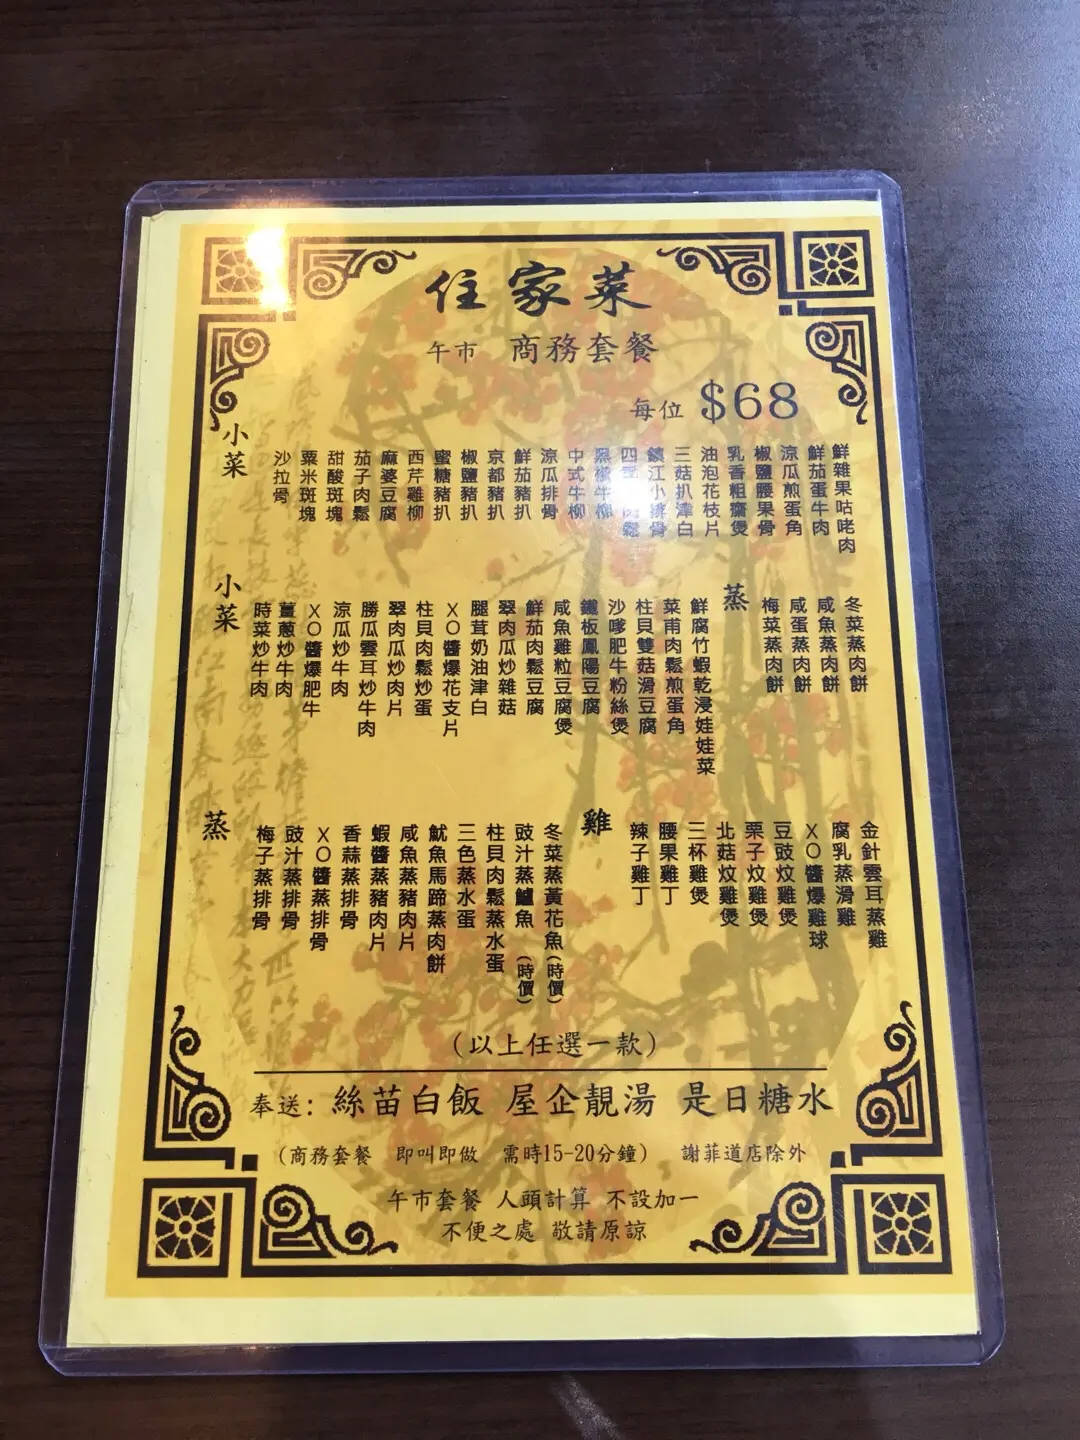 住家菜
午市 商務套餐
每位 $68
小菜
沙拉骨
粟米斑塊
甜酸斑塊
茄子肉鬆
麻婆豆腐
西芹雞柳
蜜糖豬扒
椒鹽豬扒
京都豬扒
鮮茄豬扒
涼瓜排骨
中式牛柳
黑椒牛柳
四季肉鬆
鎮江小排骨
三菇扒津白
油泡花枝片
乳香粗齋煲
椒鹽腰果骨
涼瓜煎蛋角
鮮茄蛋牛肉
鮮雜果咕咾肉
小菜
時菜炒牛肉
薑蔥炒牛肉
XO醬爆肥牛
涼瓜炒牛肉
勝瓜雲耳炒牛肉
翠肉瓜炒肉片
柱貝肉鬆炒蛋
XO醬爆花支片
腿茸奶油津白
翠肉瓜炒雜菇
鮮茄肉鬆豆腐
咸魚雞粒豆腐煲
鐵板鳳陽豆腐
沙嗲肥牛粉絲煲
柱貝雙菇滑豆腐
菜甫肉鬆煎蛋角
鮮腐竹蝦乾浸娃娃菜
蒸
梅菜蒸肉餅
咸蛋蒸肉餅
咸魚蒸肉餅
冬菜蒸肉餅
蒸
梅子蒸排骨
豉汁蒸排骨
XO醬蒸排骨
香蒜蒸排骨
蝦醬蒸豬肉片
咸魚蒸豬肉片
魷魚馬蹄蒸肉餅
三色蒸水蛋
柱貝肉鬆蒸水蛋
豉汁蒸鱸魚(時價)
冬菜蒸黃花魚(時價)
雞
辣子雞丁
腰果雞丁
三杯雞煲
北菇炆雞煲
栗子炆雞煲
豆豉炆雞煲
XO醬爆雞球
腐乳蒸滑雞
金針雲耳蒸雞
(以上任選一款)
奉送: 絲苗白飯 屋企靚湯 是日糖水
(商務套餐 即叫即做 需時15-20分鐘) 謝菲道店除外
午市套餐 人頭計算 不設加一
不便之處 敬請原諒